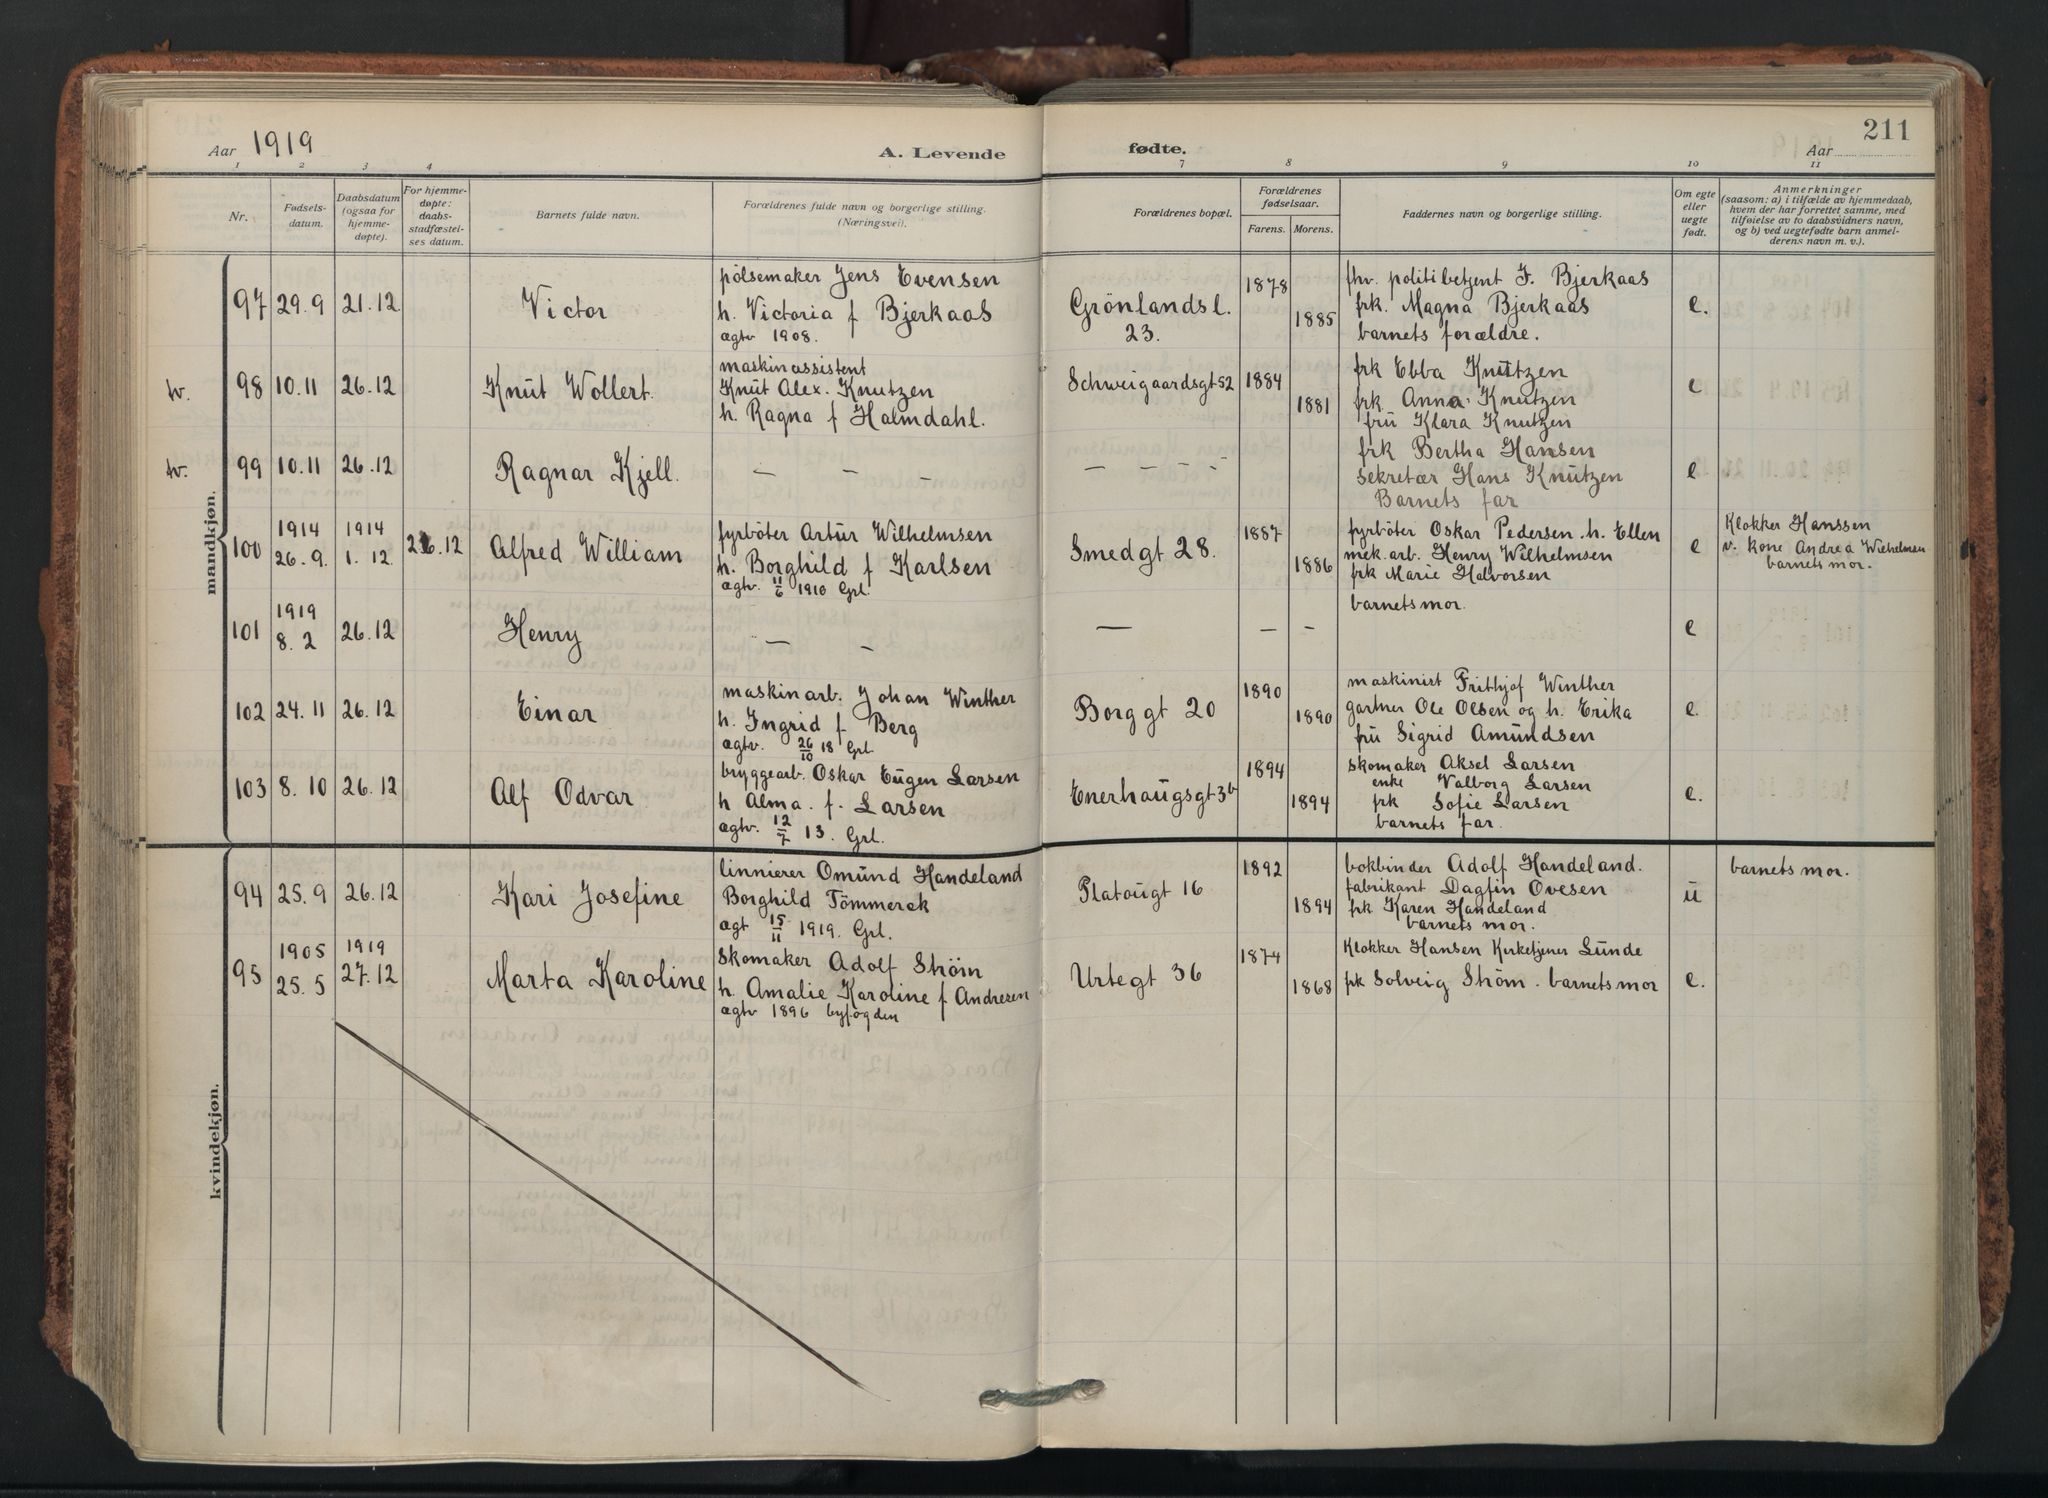 Aar 1919
A. Levende
fødte.
211
Aar
1 2 3 4
7 8 9 10 11
Nr.
Fødsels-
datum.
Daabsdatum
(ogsaa for
hjemme-
døpte).
For hjemme-
døpte:
daabs-
stadfæstel-
ses datum.
Barnets fulde navn.
Forældrenes fulde navn og borgerlige stilling.
(Næringsvei).
Forældrenes bopæl.
Forældrenes
fødselsaar.
Farens. Morens.
Faddernes navn og borgerlige stilling.
Om egte
eller
uegte
født.
Anmerkninger
(saasom: a) i tilfælde av hjemmedaab,
hvem der har forrettet samme, med
tilføielse av to daabsvidners navn,
og b) ved uegtefødte barn anmel-
derens navn m. v.).
mandkjøn.
97 29.9 21.12 Victor
pölsemaker Jens Evensen
h. Victoria f Bjerkaas
ægtv 1908.
Grönlandsl.
23.
1878
1885
fhv. politibetjent J. Bjerkaas
frk. Magna Bjerkaas
barnets forældre.
e.
tv. 98 10.11 26.12 Knut Wollert.
maskinassistent
Knut Alex. Knutzen
h. Ragna f Halmdahl.
Schweigaardsgt 52 1884
1881
frk Ebba Knutzen
frk Anna Knutzen
fru Klara Knutzen
e
tv. 99 10.11 26.12 Ragnar Kjell.
— — -
— — - -
frk Bertha Hansen
sekretær Hans Knutzen
Barnets far
e
100
1914
26.9.
1914
1.12.
26.12
Alfred William
fyrböter Artur Wilhelmsen
h. Borghild f Karlsen
ægtv. 11/6 1910 Grl.
Smedgt 28.
1887
1886
fyrböter Oskar Pedersen. h. Ellen
mek. arb. Henry Wilhelmsen
frk Marie Halvorsen
barnets mor.
e
Klokker Hanssen
v. kone Andrea Wilhelmsen
barnets mor.
101
1919
8.2
26.12
Henry
— -
— - -
e
102 24.11 26.12 Einar
maskinarb. Johan Winther
h. Ingrid f Berg
ægtv. 26/10 18 Grl.
Borggt 20
1890
1890
maskinist Frithjof Winther
gartner Ole Olsen og h. Erika
fru Sigrid Amundsen
e.
103 8.10 26.12 Alf Odvar.
bryggearb. Oskar Eugen Larsen
h Alma. f. Larsen
ægtv. 12/7 13. Grl.
Enerhaugsgt 3b
1894
1894
skomaker Aksel Larsen
enke Valborg Larsen
frk Sofie Larsen
barnets far.
e.
kvindekjøn.
94 25.9 26.12 Kari Josefine
linnierer Omund Handeland
Borghild Tömmerek
ægt 15/11 1919. Grl.
Platougt 16
1892
1894
bokbinder Adolf Handeland.
fabrikant Dagfin Ovesen
frk Karen Handeland
barnets mor.
u
barnets mor.
95
1905
25.5
1919
27.12
Marta Karoline
skomaker Adolf Ström
h. Amalie Karoline f Andresen
ægtv 1896 byfogden
Urtegt 36
1874
1868
Klokker Hansen Kirketjener Lunde
frk Solveig Ström. barnets mor
e.